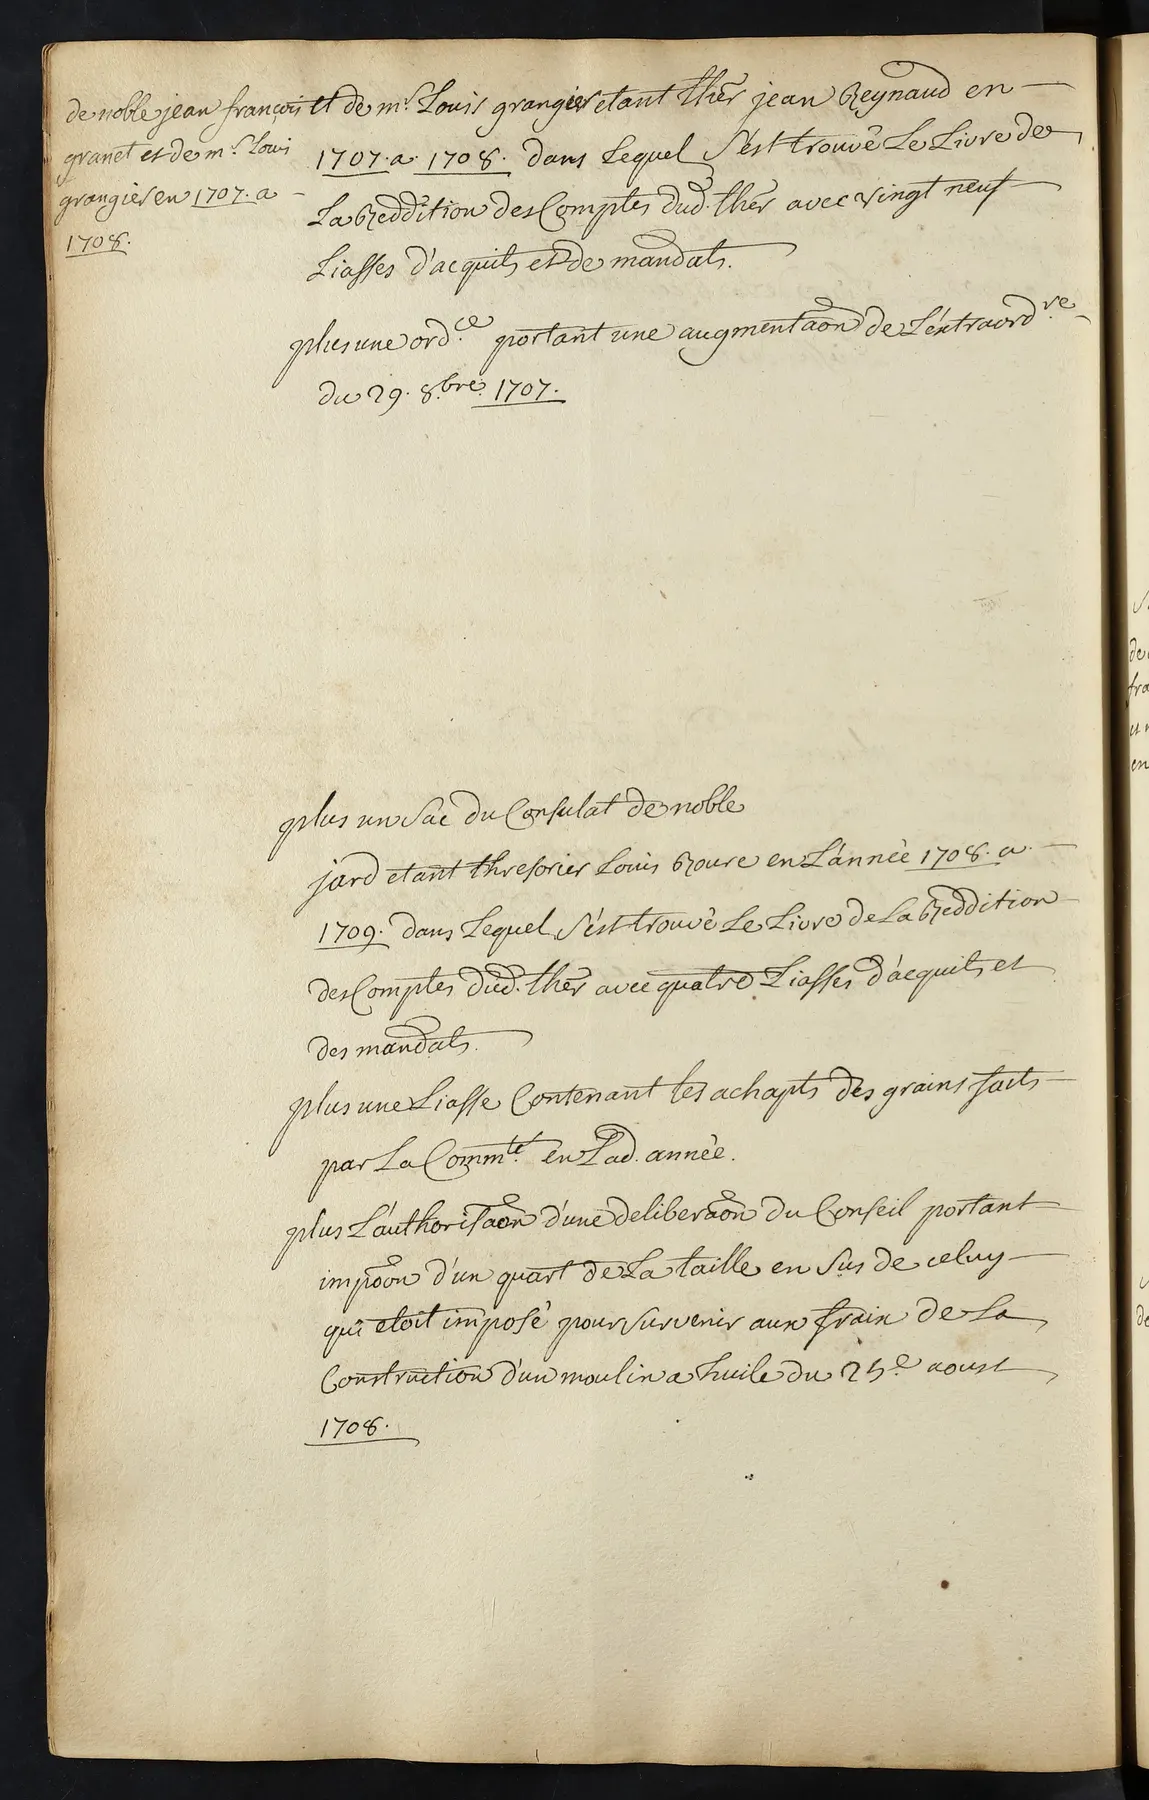 de noble jean françois
granet et de mr. Louis
grangier en 1707. a
1708.
et de mr. Louis grangier etant ther jean Reynaud en
1707. a. 1708. dans Lequel s'est trouvé Le Livre de
La Reddition des Comptes dud. ther avec vingt neuf
Liasses d'acquits et de mandats.
plus une ord.ce portant une augmentaon de L'extraord.re
du 29. 8.bre 1707.
plus un sac du Consulat de noble
jard etant thresorier Louis Roure en L'année 1708. a
1709. dans Lequel s'est trouvé Le Livre de La Reddition
des Comptes dud. ther avec quatre Liasses d'acquits et
des mandats.
plus une Liasse Contenant les achapts des grains faits
par La Comm.té en Lad. année.
plus L'authorisaon d'une deliberaon du Conseil portant
impoon d'un quart de La taille en sus de celuy
qui etoit imposé pour survenir aux fraix de La
Construction d'un moulin a huile du 25.e aoust
1708.